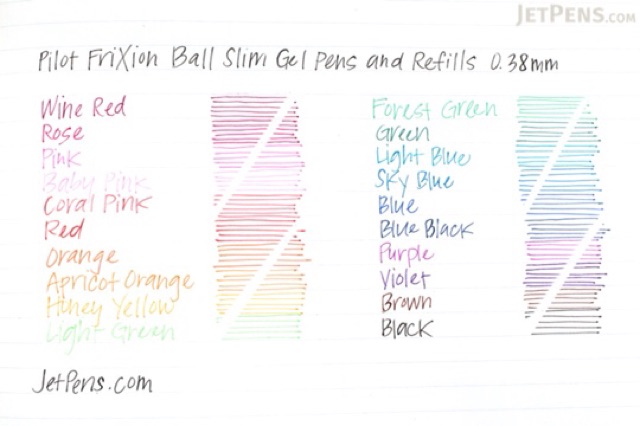 JETPENS.COM
Pilot FriXion Ball Slim Gel Pens and Refills 0.38mm
Wine Red
Rose
Pink
Baby Pink
Coral Pink
Red
Orange
Apricot Orange
Honey Yellow
Light Green
Forest Green
Green
Light Blue
Sky Blue
Blue
Blue Black
Purple
Violet
Brown
Black
JetPens.com